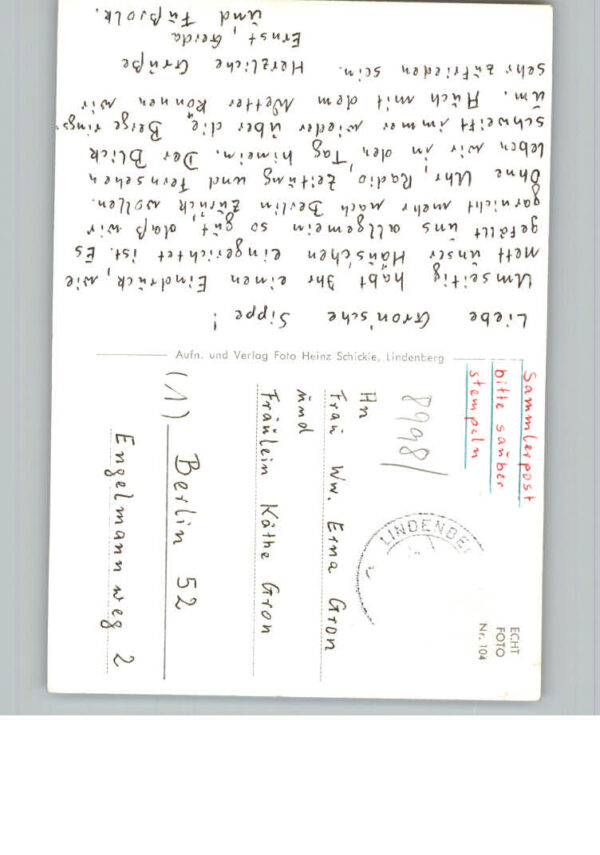 Liebe Gron'sche Sippe!
Umseitig habt Ihr einen Eindruck, wie
nett unser Häuschen eingerichtet ist. Es
gefällt uns allgemein so gut, daß wir
garnicht mehr nach Berlin zurück wollen.
Ohne Uhr, Radio Zeitung und Fernsehen
leben wir in den „Tag" hinein. Der Blick
schweift immer wieder über die Berge rings-
um. Auch mit dem Wetter können wir
sehr zufrieden sein. Herzliche Grüße
Ernst, Gerda
und Fußvolk.
Aufn. und Verlag Foto Heinz Schickle, Lindenberg
Sammlerpost
bitte sauber
stempeln
ECHT
FOTO
Nr. 104
LINDENBE
An
Frau Ww. Erna Gron
und
Fräulein Käthe Gron
(1) Berlin 52
Engelmannweg 2